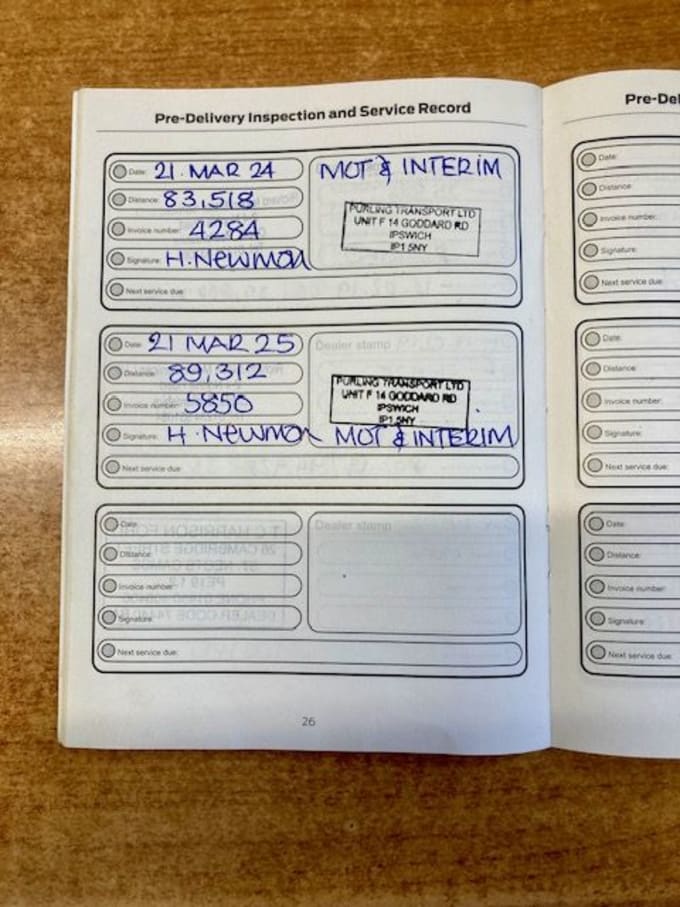 Pre-Delivery Inspection and Service Record
Date: 21. MAR 24
Distance: 83,518
Invoice number: 4284
Signature: H. Newmon
Next service due:
MOT & INTERIM
PURLING TRANSPORT LTD
UNIT F 14 GODDARD RD
IPSWICH
IP1 5NY
Date: 21 MAR 25
Distance: 89,312
Invoice number: 5850
Signature: H. Newmon
Next service due:
Dealer stamp
PURLING TRANSPORT LTD
UNIT F 14 GODDARD RD
IPSWICH
IP1 5NY
MOT & INTERIM
Date:
Distance:
Invoice number:
Signature:
Next service due:
Dealer stamp
26
Pre-Del
Date:
Distance:
Invoice number:
Signature:
Next service due:
Date:
Distance:
Invoice number:
Signature:
Next service due:
Date:
Distance:
Invoice number:
Signature:
Next service due: